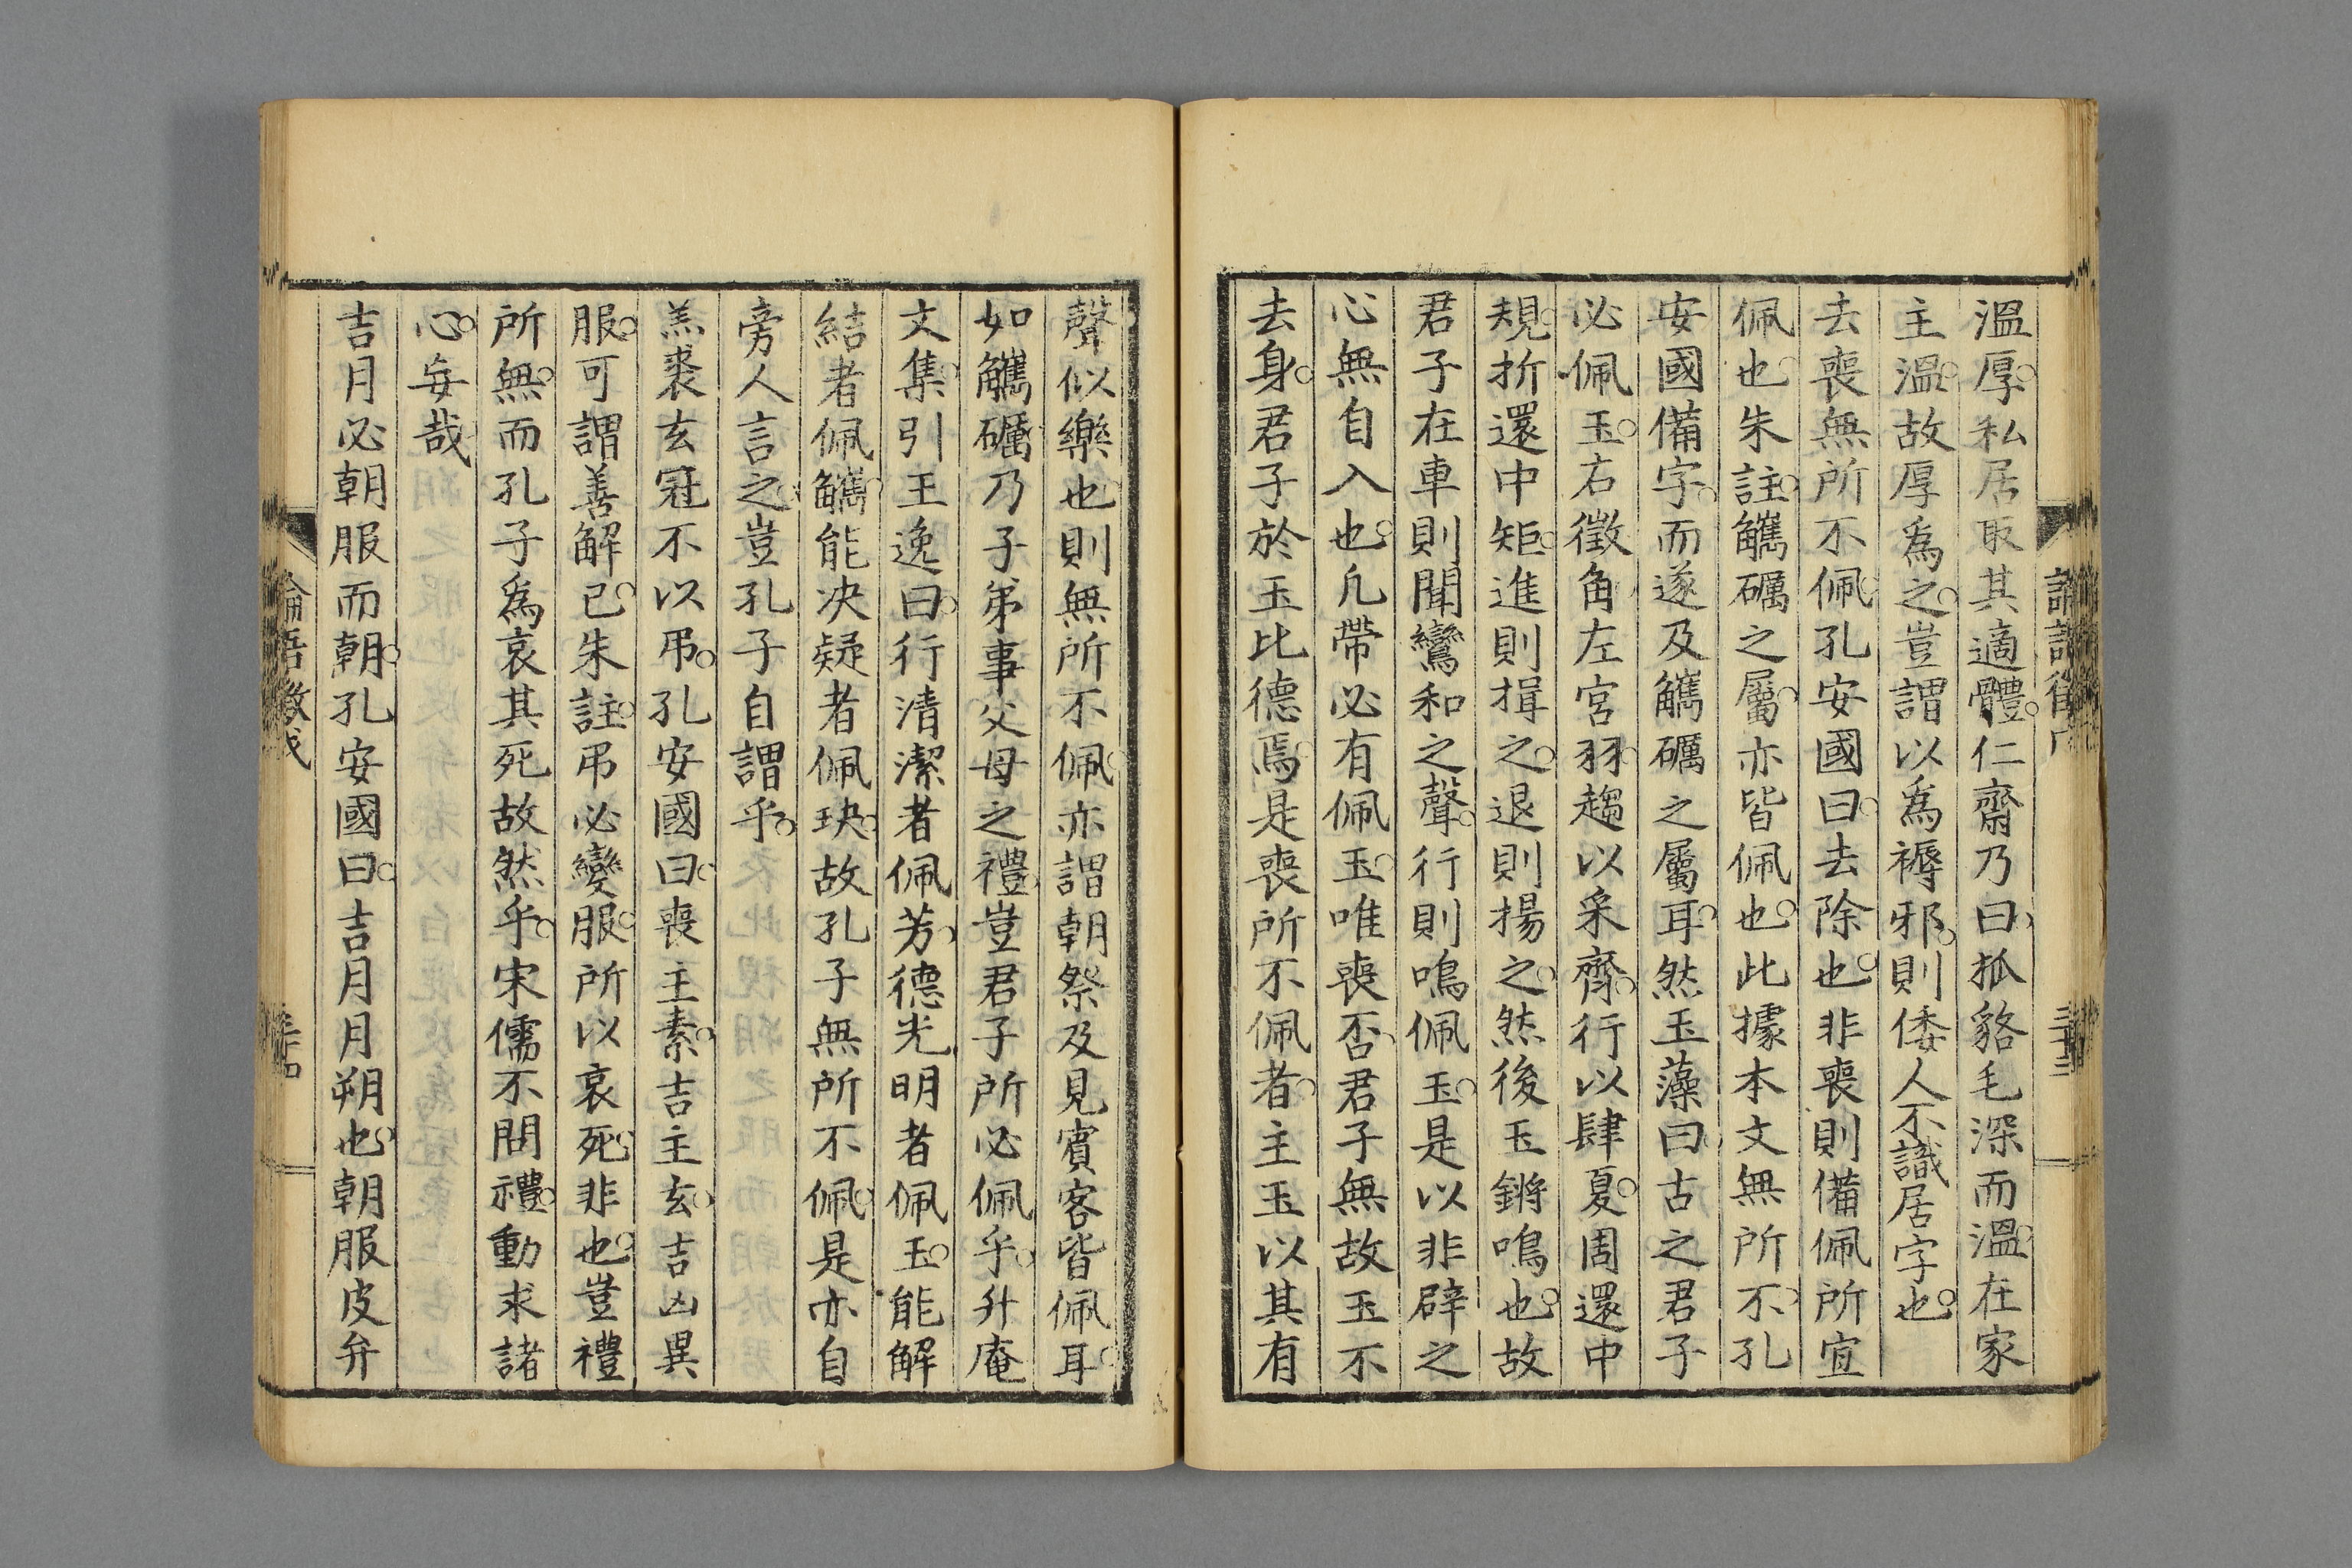 溫厚私居取其適體仁齋乃曰狐貉毛深而溫在家
主溫故厚爲之豈謂以爲褥邪則倭人不識居字也
去喪無所不佩孔安國曰去除也非喪則備佩所宜
佩也朱註觿礪之屬亦皆佩也此據本文無所不孔
安國備字而遂及觿礪之屬耳然玉藻曰古之君子
必佩玉右徵角左宮羽趨以采齊行以肆夏周還中
規折還中矩進則揖之退則揚之然後玉鏘鳴也故
君子在車則聞鸞和之聲行則鳴佩玉是以非辟之
心無自入也凡帶必有佩玉唯喪否君子無故玉不
去身君子於玉比德焉是喪所不佩者主玉以其有
聲似樂也則無所不佩亦謂朝祭及見賓客皆佩耳
如觿礪乃子弟事父母之禮豈君子所必佩乎升庵
文集引王逸曰行清潔者佩芳德光明者佩玉能解
結者佩觿能决疑者佩玦故孔子無所不佩是亦自
旁人言之豈孔子自謂乎
羔裘玄冠不以弔孔安國曰喪主素吉主玄吉凶異
服可謂善解已朱註弔必變服所以哀死非也豈禮
所無而孔子爲哀其死故然乎宋儒不問禮動求諸
心妄哉
吉月必朝服而朝孔安國曰吉月月朔也朝服皮弁
論語徵戊